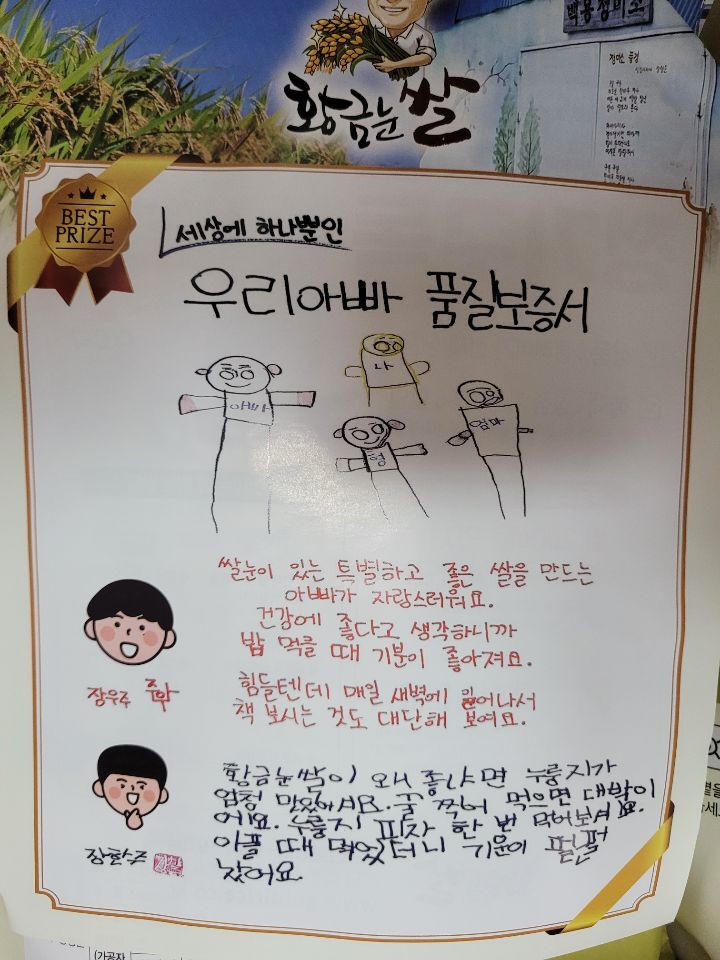 황금눈쌀
백용정비소
BEST
PRIZE
세상에 하나뿐인
우리아빠 품질보증서
아빠
나
형
엄마
쌀눈이 있는 특별하고 좋은 쌀을 만드는
아빠가 자랑스러워요.
건강에 좋다고 생각하니까
밥 먹을 때 기분이 좋아져요.
힘들텐데 매일 새벽에 일어나서
책 보시는 것도 대단해 보여요.
장우주
황금눈쌀이 왜 좋냐면 누룽지가
엄청 맛있어져요. 꿀 찍어 먹으면 대박이
에요. 누룽지 피자 한 번 먹어보셔요.
아플 때 먹었더니 기운이 펄펄
났어요
(가공자